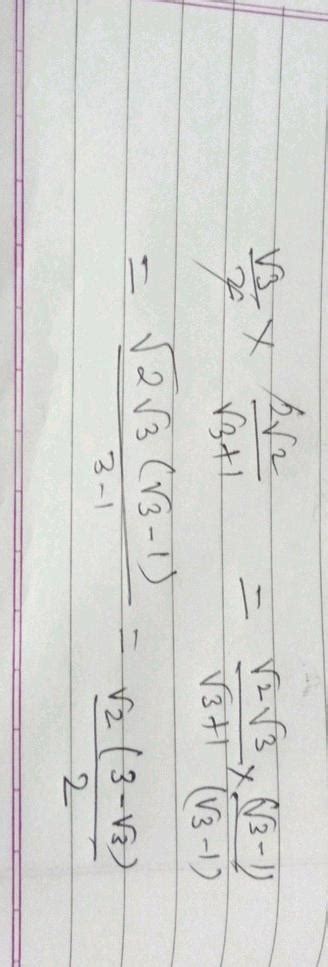 √3/2 × 2√2/(√3+1) = √2√3/(√3+1) × (√3-1)/(√3-1)
= √2√3(√3-1)/(3-1) = √2(3-√3)/2